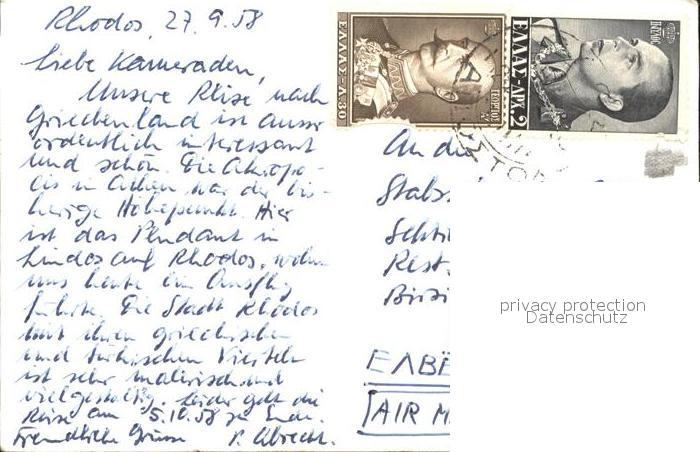 Rhodos, 27.9.58
Liebe Kameraden,
Unsere Reise nach
Griechenland ist ausser
ordentlich interessant
und schön. Die Akropo-
lis in Athen war der bis-
herige Höhepunkt. Hier
ist das Pendant in
Lindos auf Rhodos, wohin
uns heute ein Ausflug
führte. Die Stadt Rhodos
mit ihren griechischen
und türkischen Vierteln
ist sehr malerisch und
vielgestaltig. Leider geht die
Reise am 5.10.58 zu Ende.
Freundliche Grüsse P. Albrecht.
ΕΛΛΑΣ-Λ.30
ΕΛΛΑΣ ΔΡ.2
An die
Stabs
Rest.
privacy protection
Datenschutz
ΕΛΒΕ
AIR M